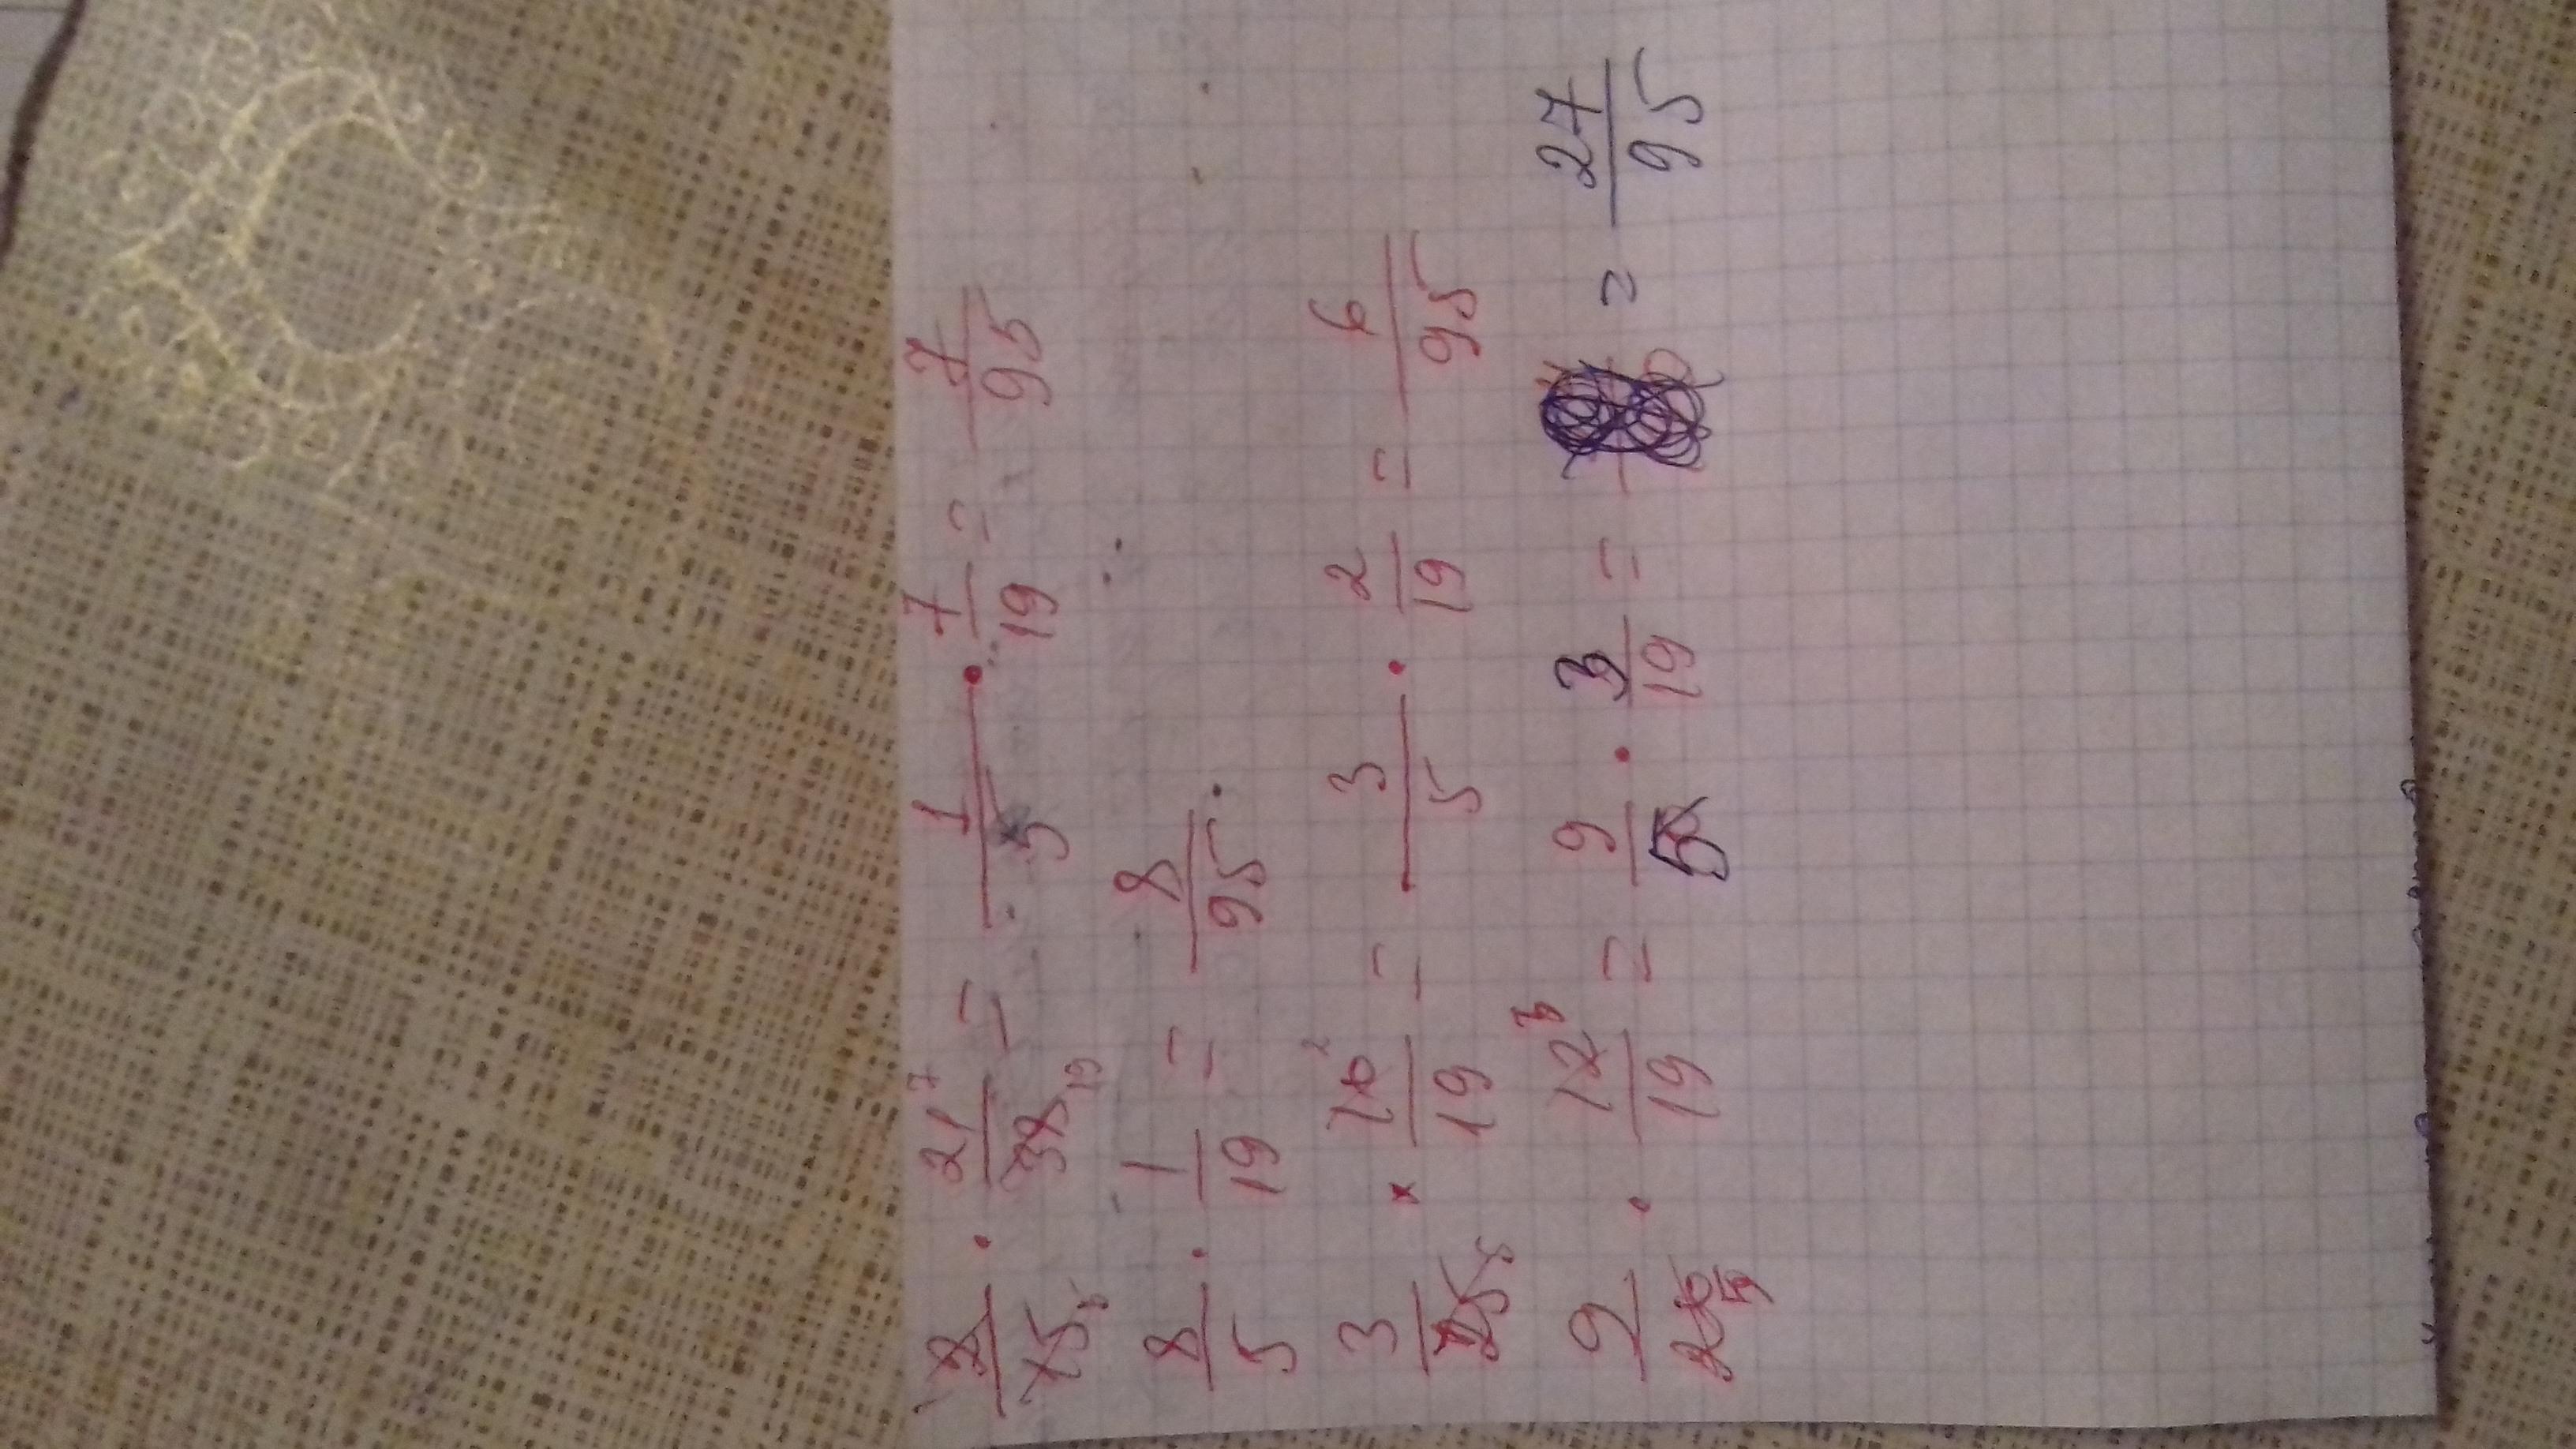 2/15₅ · 21⁷/38₁₉ = 1/5 · 7/19 = 7/95
8/5 · 1/19 = 8/95
3/25₅ · 10²/19 = 3/5 · 2/19 = 6/95
9/20₅ · 12³/19 = 9/5 · 3/19 = = 27/95